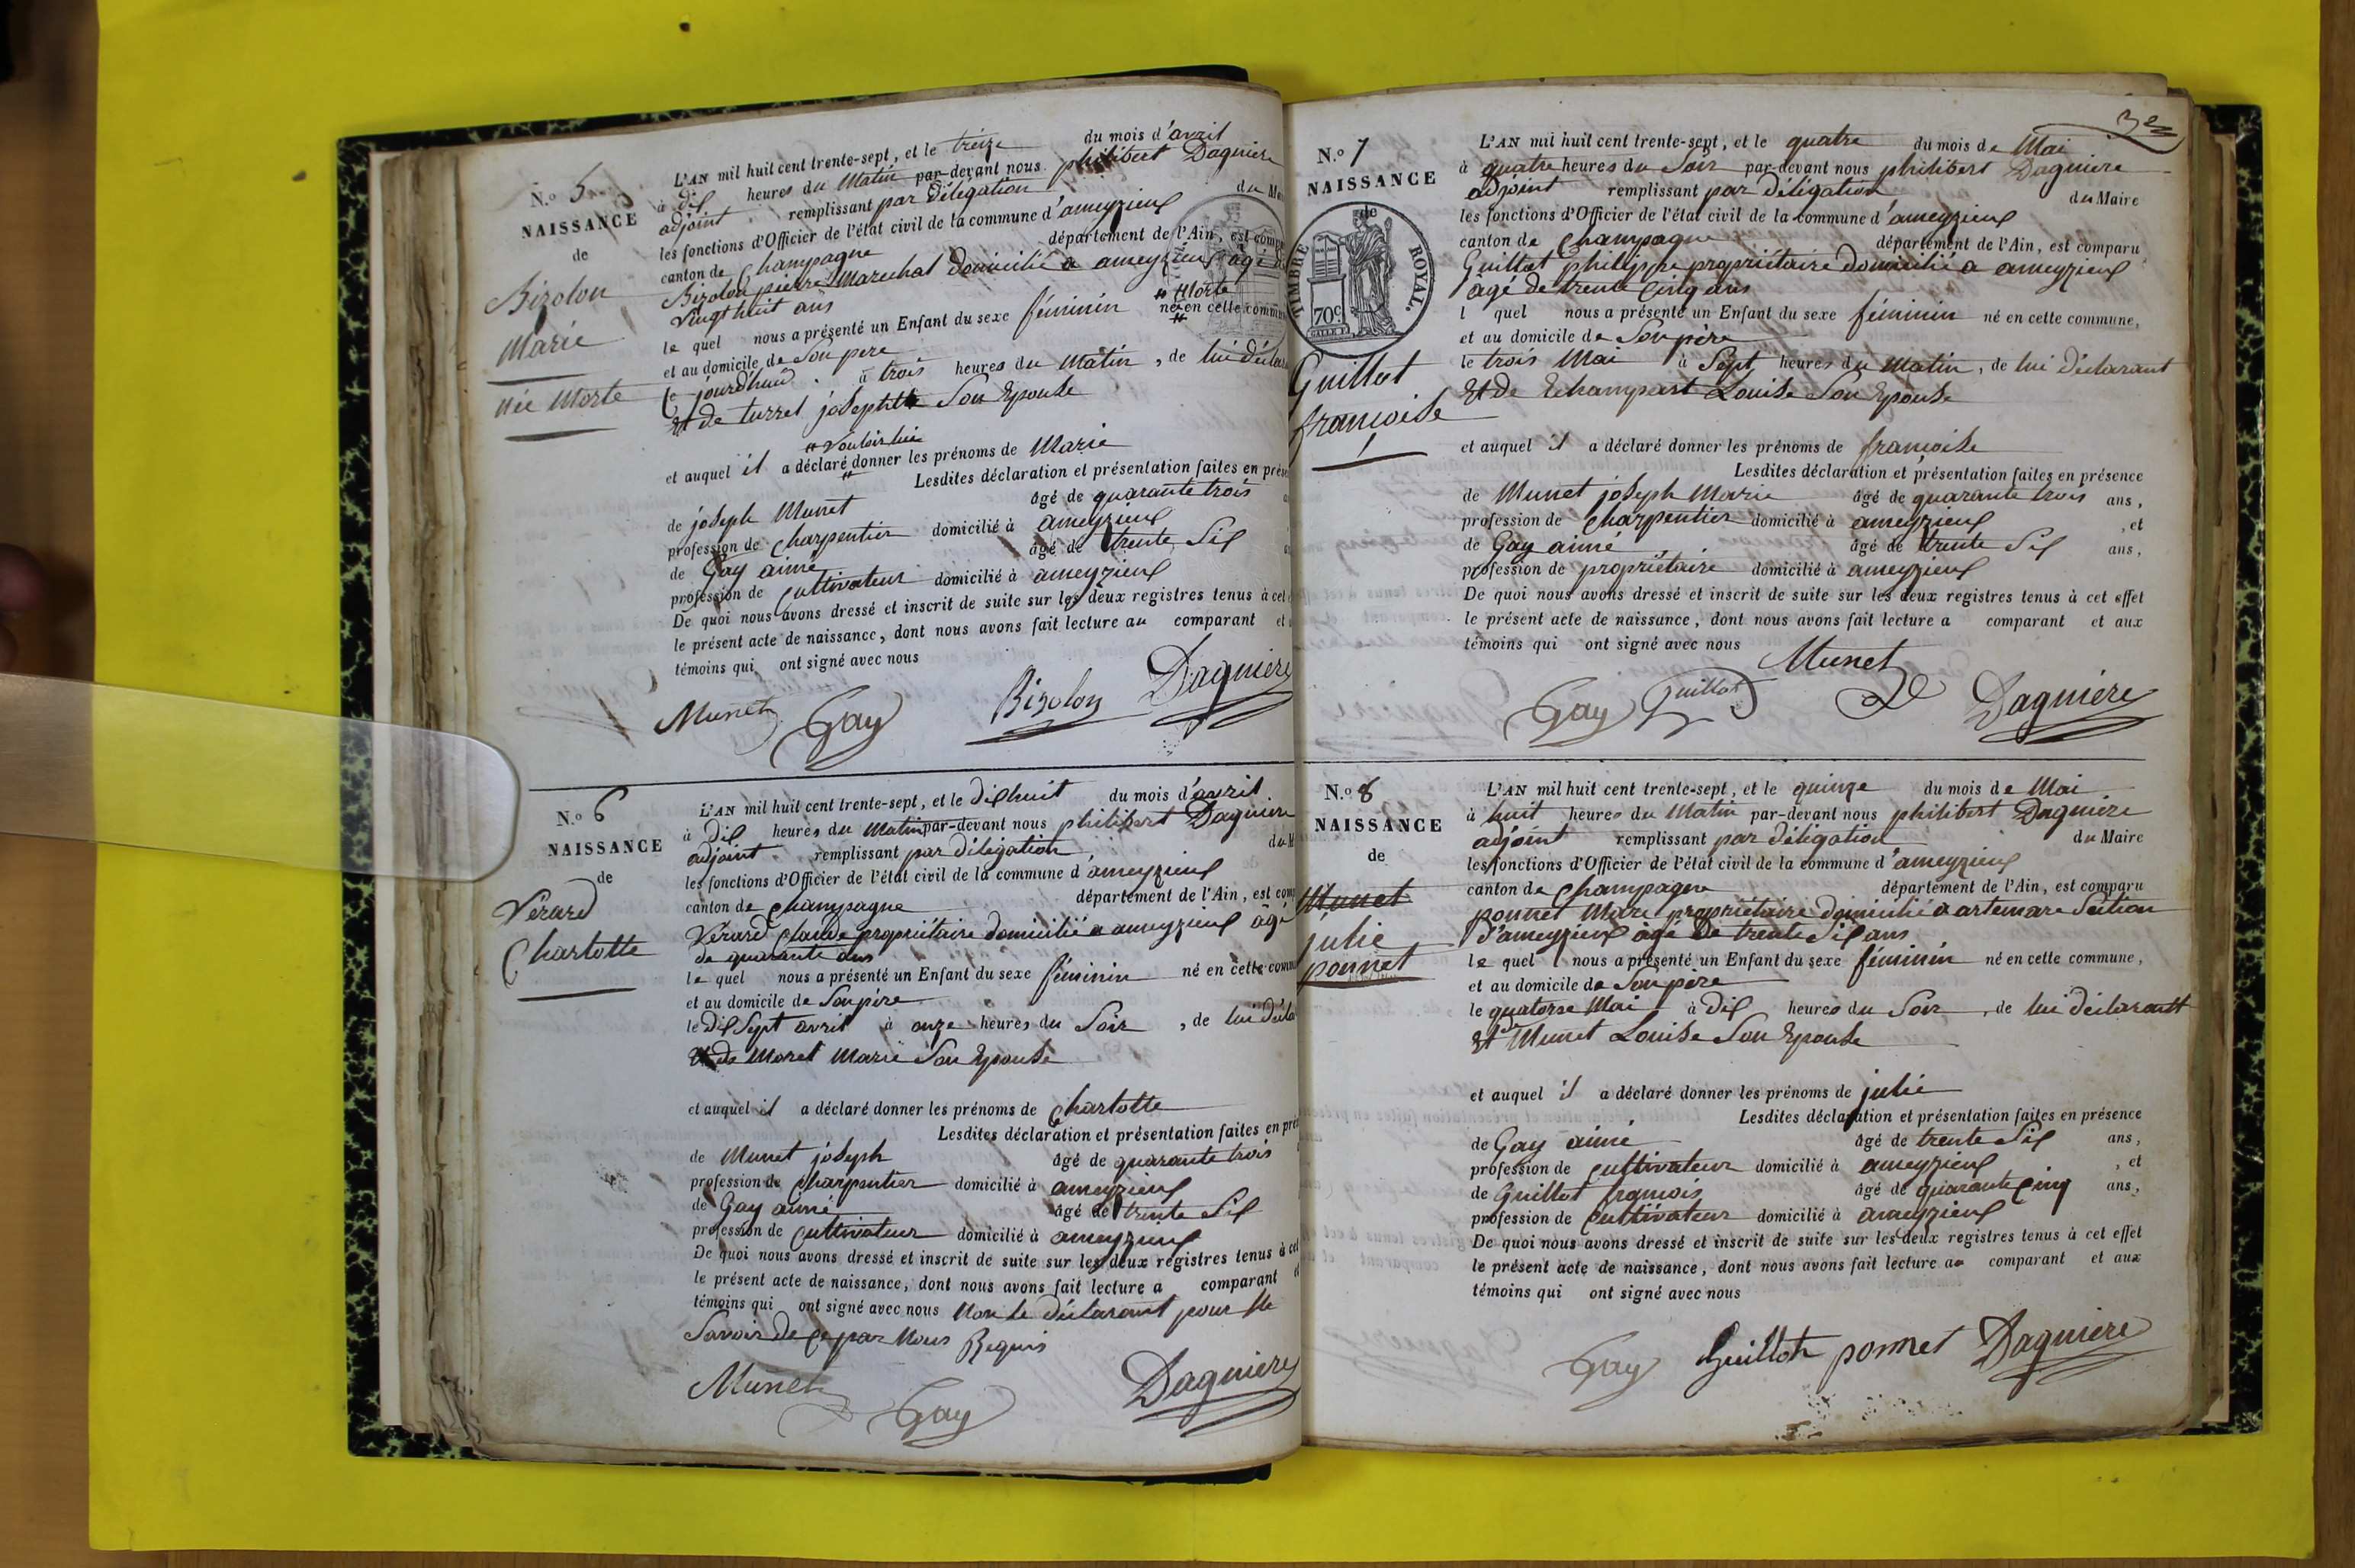 N.o 5
NAISSANCE
de
Bizolon
Marie
née Morte
L'AN mil huit cent trente-sept, et le treize du mois d'avril
à dix heures du Matin par-devant nous philibert Dagniere
adjoint remplissant par Délégation du
les fonctions d'Officier de l'état civil de la commune d'ameyzieux
canton de Champagne département de l'Ain, est
Bizolon pierre Marechal domicilié a ameyzieux agé
vingt huit ans
le quel nous a présenté un Enfant du sexe féminin né en cette
# Morte
et au domicile de Son pere
Ce jourd'hui à trois heures du Matin, de lui
Et de turrel josephte Son Epouse
# vouloir lui
et auquel il a déclaré donner les prénoms de Marie
Lesdites déclaration et présentation faites en
de joseph Munet âgé de quarante trois
profession de Charpentier domicilié à ameyzieux
de Gay aimé âgé de trente Six
profession de Cultivateur domicilié à ameyzieux
De quoi nous avons dressé et inscrit de suite sur les deux registres tenus à cet
le présent acte de naissance, dont nous avons fait lecture au comparant et
témoins qui ont signé avec nous
Munet Gay Bizolon Dagniere
N.o 6
NAISSANCE
de
Vérard
Charlotte
L'AN mil huit cent trente-sept, et le dix huit du mois d'avril
à Dix heures du Matin par-devant nous philibert Dagniere
adjoint remplissant par délégation du
les fonctions d'Officier de l'état civil de la commune d'ameyzieux
canton de Champagne département de l'Ain, est
Vérard Claude propriétaire domicilié a ameyzieux agé
de quarante ans
le quel nous a présenté un Enfant du sexe féminin né en cette
et au domicile de Son père
le Dix Sept avril à onze heures du Soir, de lui
Et de Moret Marie Son Epouse
et auquel il a déclaré donner les prénoms de Charlotte
Lesdites déclaration et présentation faites en
de Munet joseph âgé de quarante trois
profession de Charpentier domicilié à ameyzieux
de Gay aimé âgé de trente Six
profession de Cultivateur domicilié à ameyzieux
De quoi nous avons dressé et inscrit de suite sur les deux registres tenus à cet
le présent acte de naissance, dont nous avons fait lecture a comparant
témoins qui ont signé avec nous Non le déclarant pour Ne
Savoir de Ce par Nous Requis
Munet Gay Dagniere
32
N.o 7
NAISSANCE
de
TIMBRE ROYAL.
70c
Guillot
françoise
L'AN mil huit cent trente-sept, et le quatre du mois de Mai
à quatre heures du Soir par-devant nous philibert Dagniere
adjoint remplissant par Délégation du Maire
les fonctions d'Officier de l'état civil de la commune d'ameyzieux
canton de Champagne département de l'Ain, est comparu
Guillot philippe propriétaire domicilié a ameyzieux
âgé de trente Cinq ans
l quel nous a présenté un Enfant du sexe féminin né en cette commune,
et au domicile de Son père
le trois Mai à Sept heures du Matin, de lui Déclarant
Et de Echampart Louise Son Epouse
et auquel il a déclaré donner les prénoms de françoise
Lesdites déclaration et présentation faites en présence
de Munet joseph Marie âgé de quarante trois ans,
profession de Charpentier domicilié à ameyzieux, et
de Gay aimé âgé de trente Six ans,
profession de propriétaire domicilié à ameyzieux
De quoi nous avons dressé et inscrit de suite sur les deux registres tenus à cet effet
le présent acte de naissance, dont nous avons fait lecture a comparant et aux
témoins qui ont signé avec nous
Munet
Gay Guillot Dagniere
N.o 8
NAISSANCE
de
Munet
julie
ponnet
L'AN mil huit cent trente-sept, et le quinze du mois de Mai
à huit heures du Matin par-devant nous philibert Dagniere
adjoint remplissant par délégation du Maire
les fonctions d'Officier de l'état civil de la commune d'ameyzieux
canton de Champagne département de l'Ain, est comparu
ponnet Marc propriétaire domicilié a artemare Section
d'ameyzieux âgé De trente Six ans
le quel nous a présenté un Enfant du sexe féminin né en cette commune,
et au domicile de Son père
le quatorse Mai à Dix heures du Soir, de lui déclarant
Et Munet Louise Son Epouse
et auquel il a déclaré donner les prénoms de julie
Lesdites déclaration et présentation faites en présence
de Gay aimé âgé de trente Six ans,
profession de Cultivateur domicilié à ameyzieux, et
de Guillot françois âgé de quarante Cinq ans,
profession de Cultivateur domicilié à ameyzieux
De quoi nous avons dressé et inscrit de suite sur les deux registres tenus à cet effet
le présent acte de naissance, dont nous avons fait lecture au comparant et aux
témoins qui ont signé avec nous
Gay Guillot ponnet Dagniere